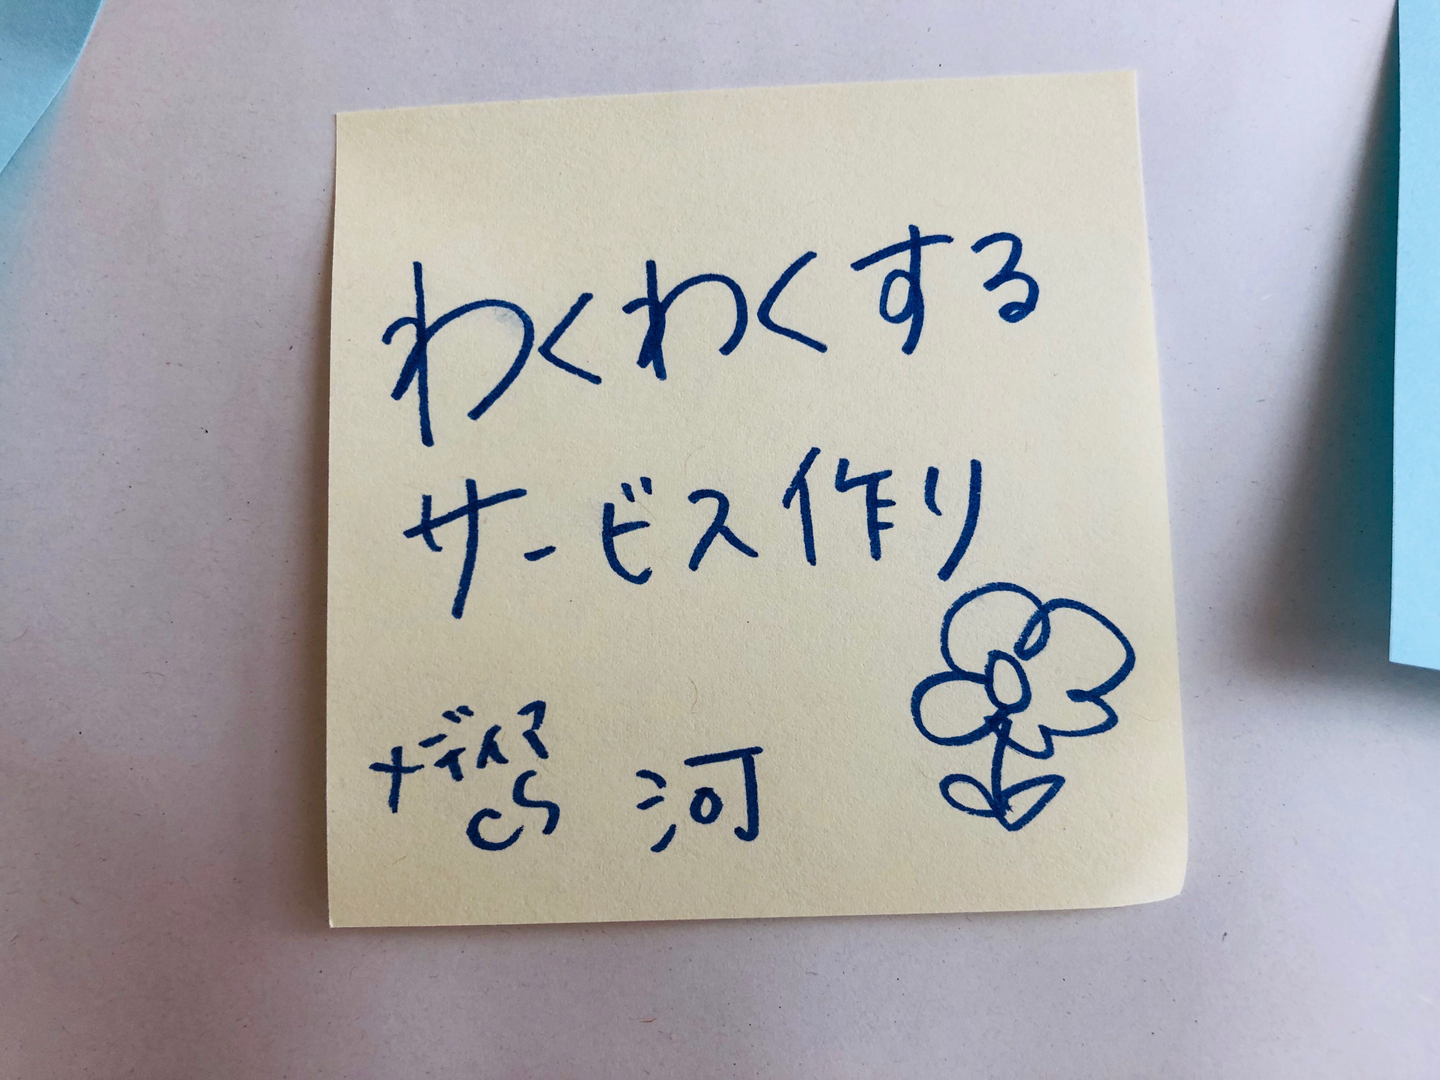 わくわくする
サービス作り
メディア
CS 河